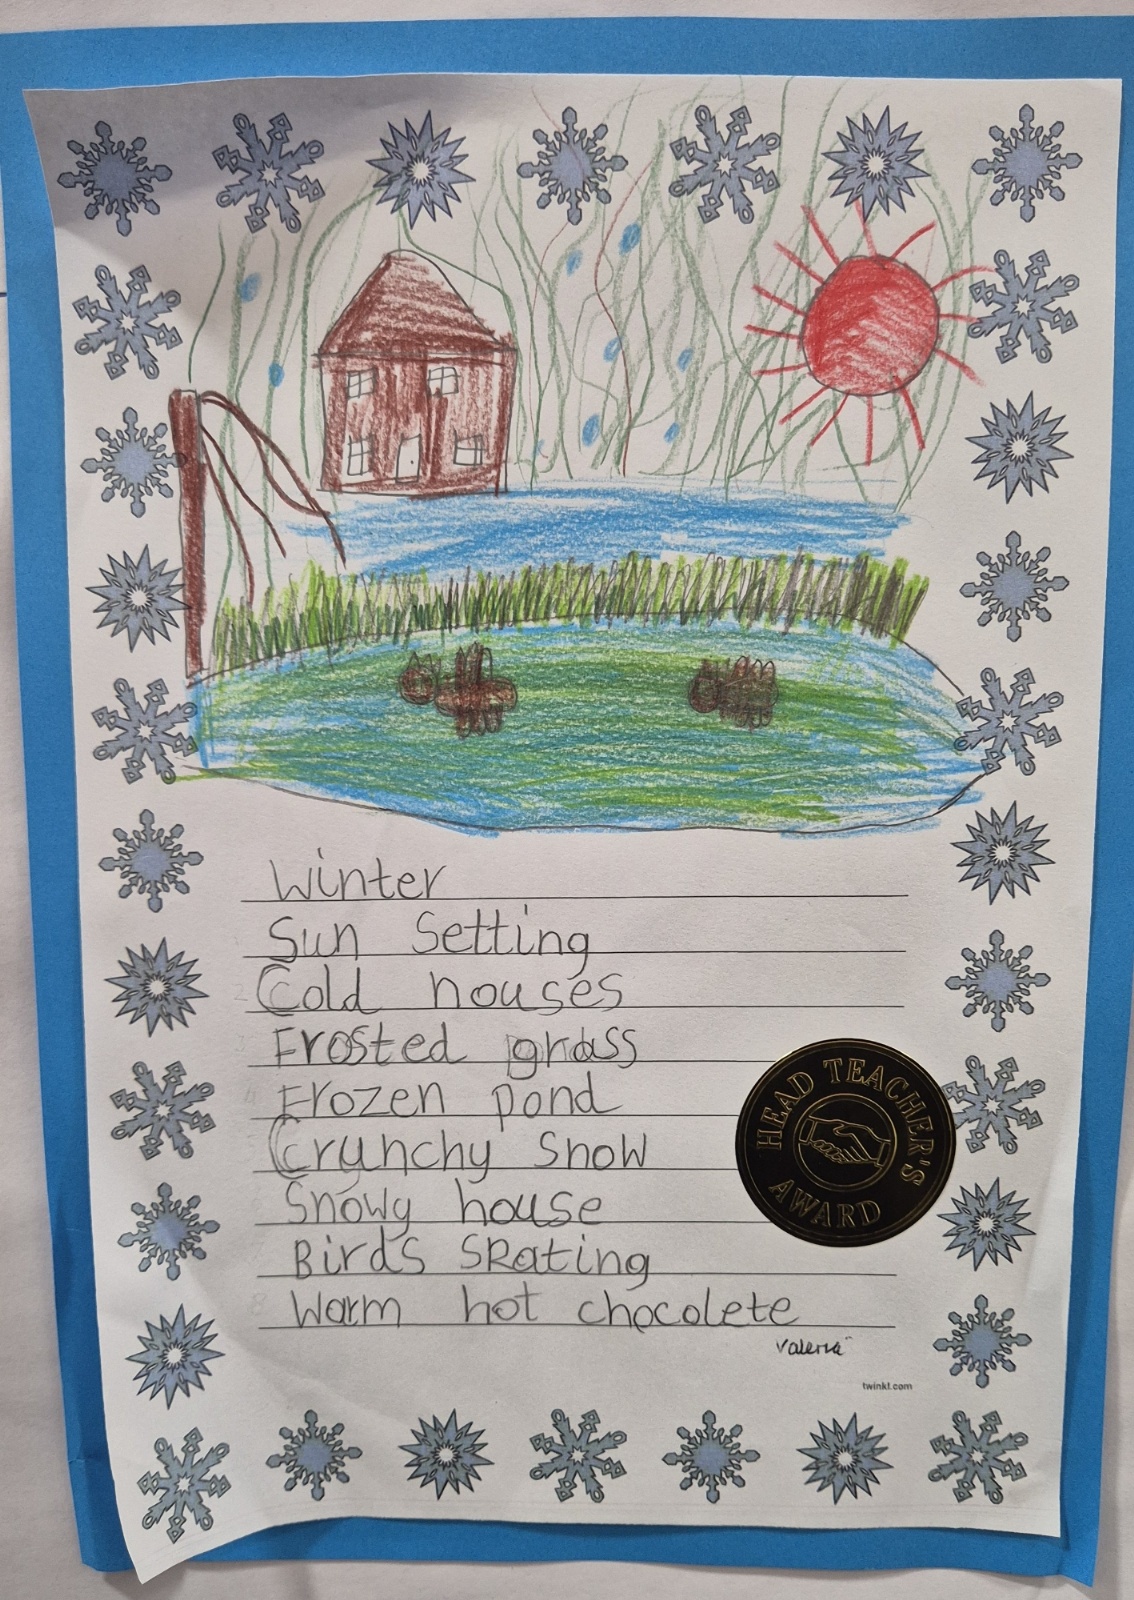 Winter
Sun Setting
Cold houses
Frosted grass
Frozen pond
Crunchy Snow
Snowy house
Birds Skating
Warm hot chocolete
HEAD TEACHER'S
AWARD
twinkl.com